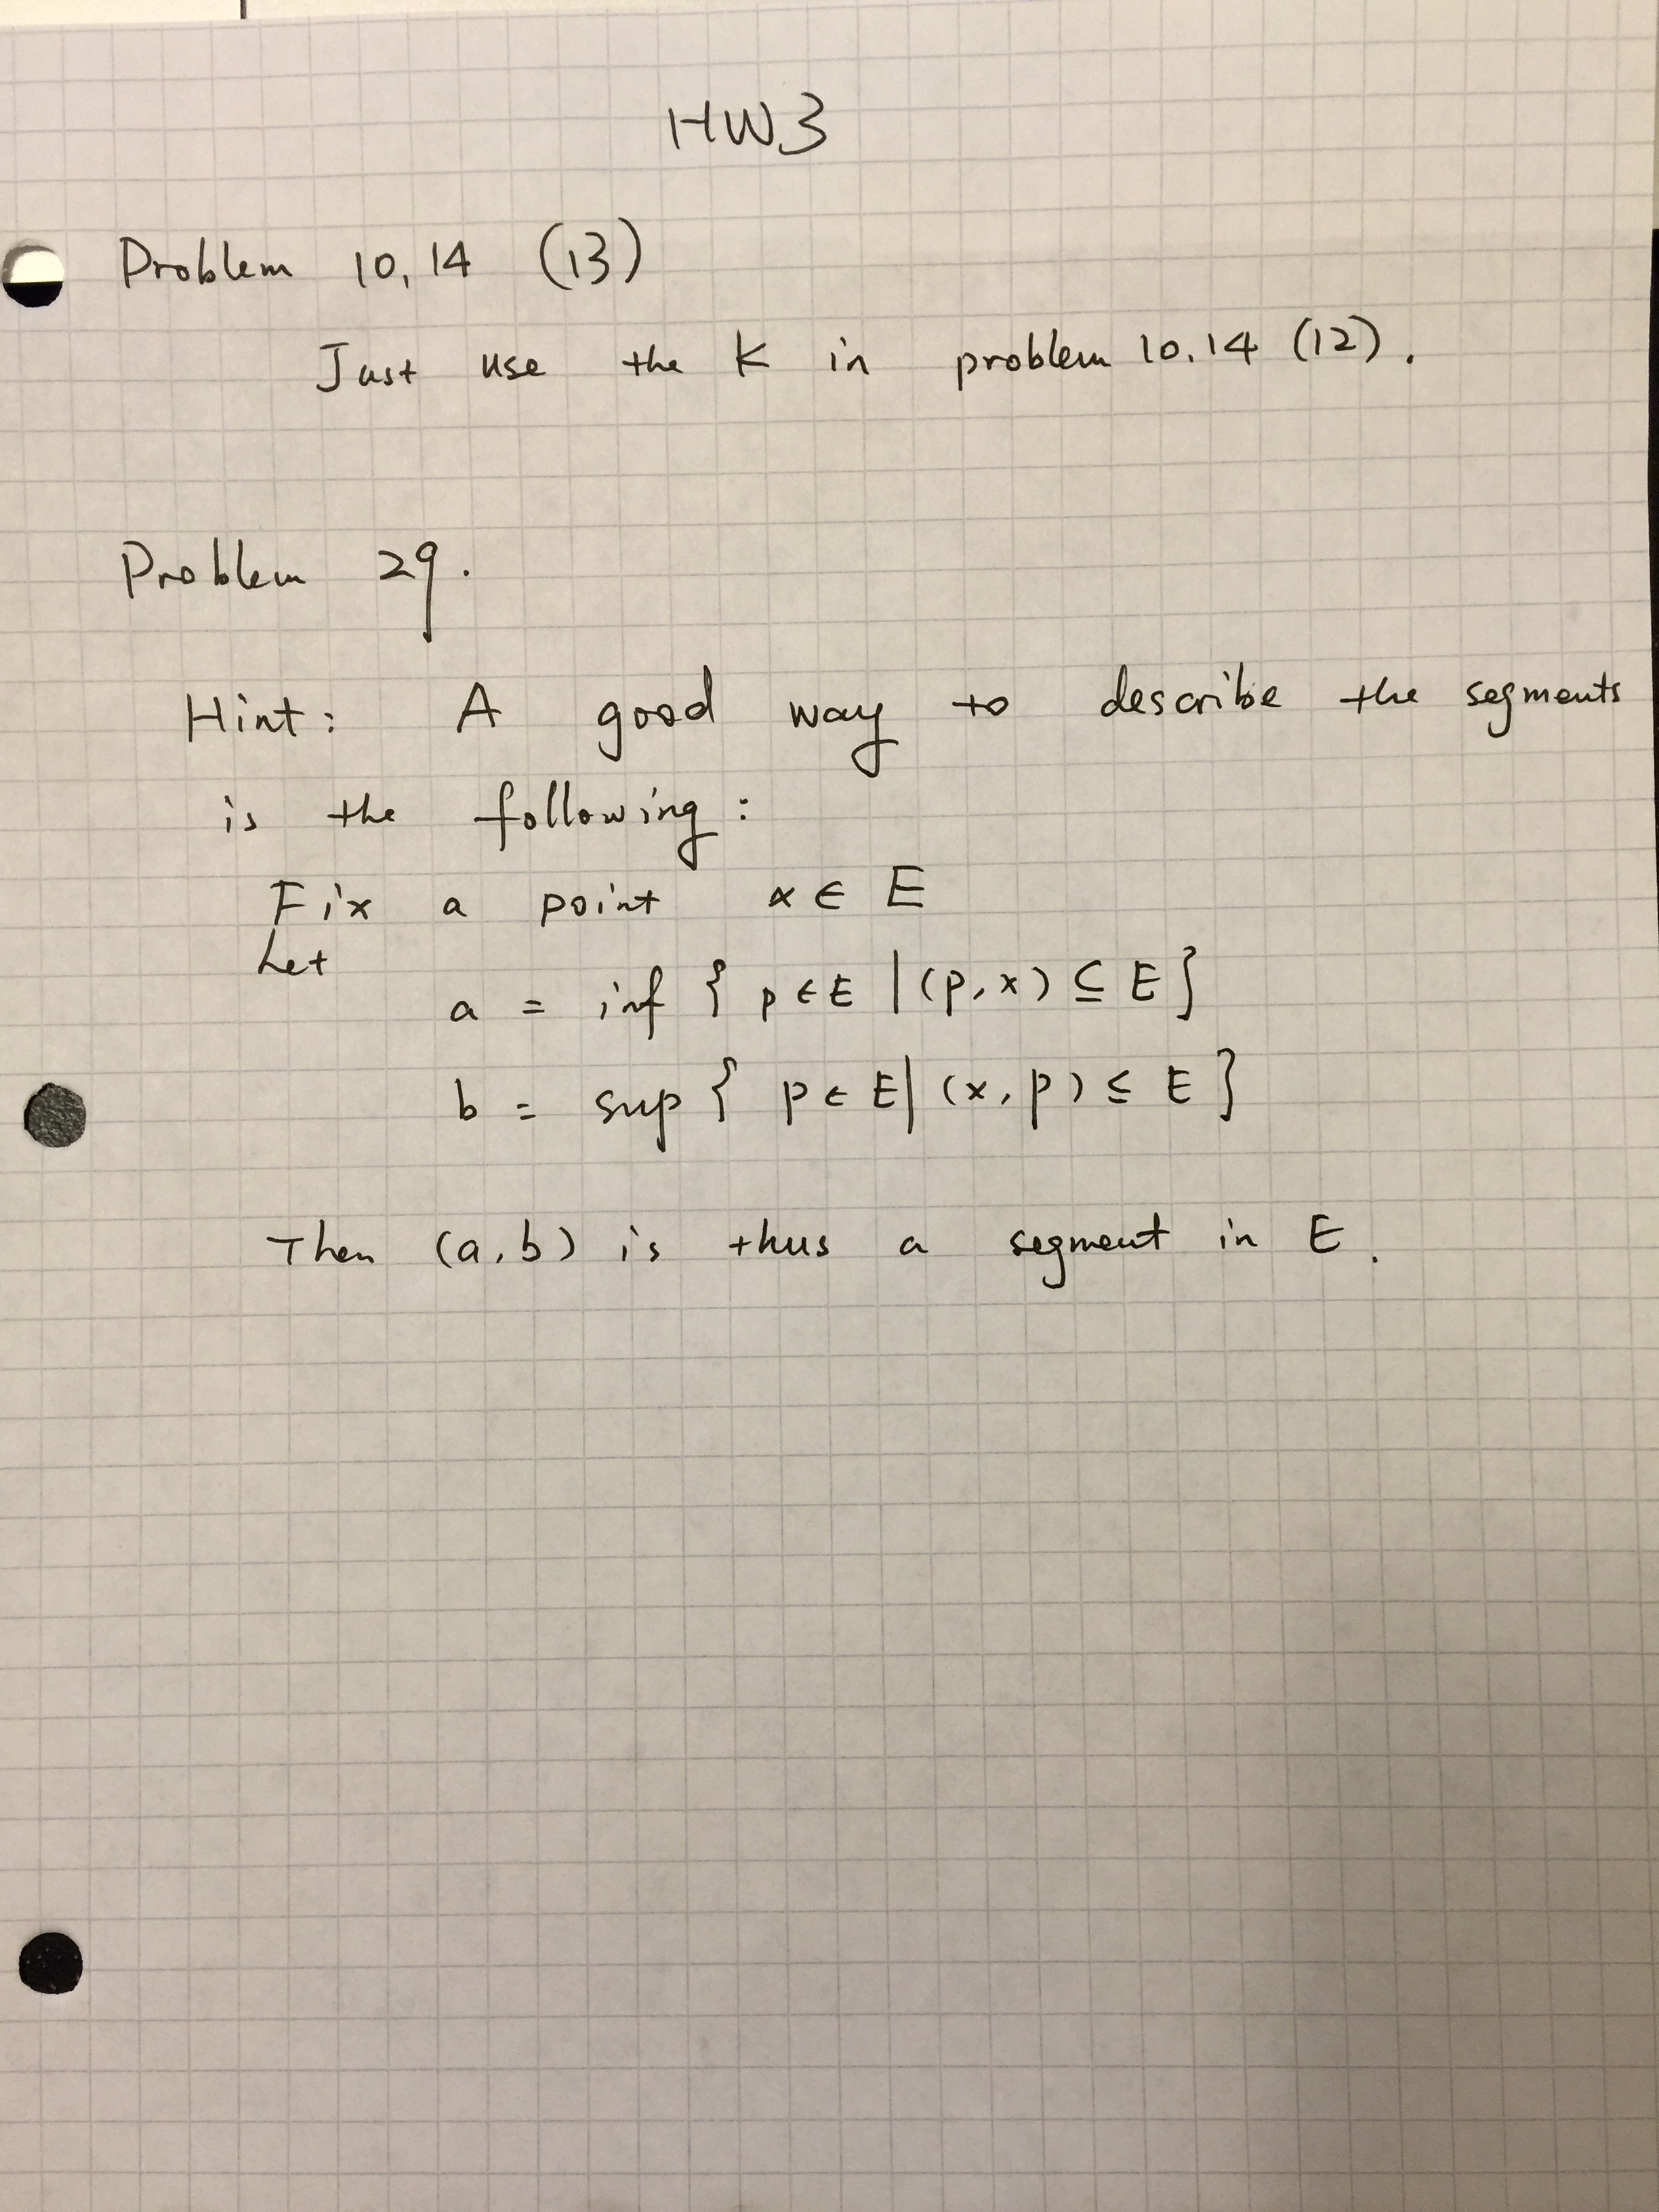 HW3
Problem 10,14 (13)
Just use the K in problem 10.14 (12).
Problem 29.
Hint: A good way to describe the segments
is the following:
Fix a point x ∈ E
Let
a = inf { p ∈ E | (p, x) ⊆ E }
b = sup { p ∈ E | (x, p) ⊆ E }
Then (a, b) is thus a segment in E.